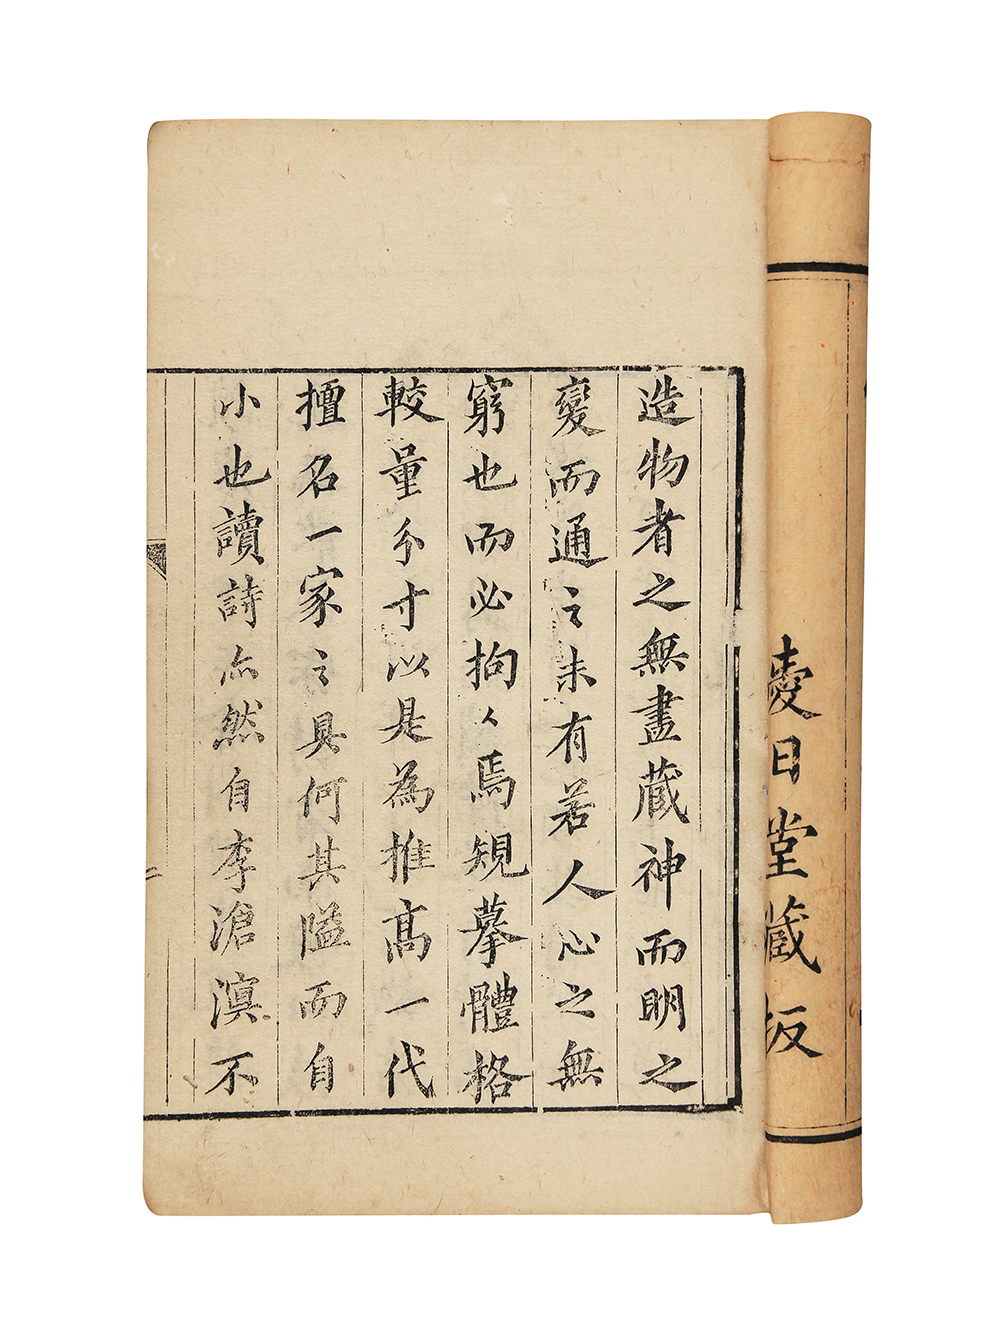 愛日堂藏板
造物者之無盡藏神而明之
變而通之未有若人心之無
窮也而必拘〻焉規摹體格
較量分寸以是為推高一代
擅名一家之具何其隘而自
小也讀詩亦然自李滄溟不
二